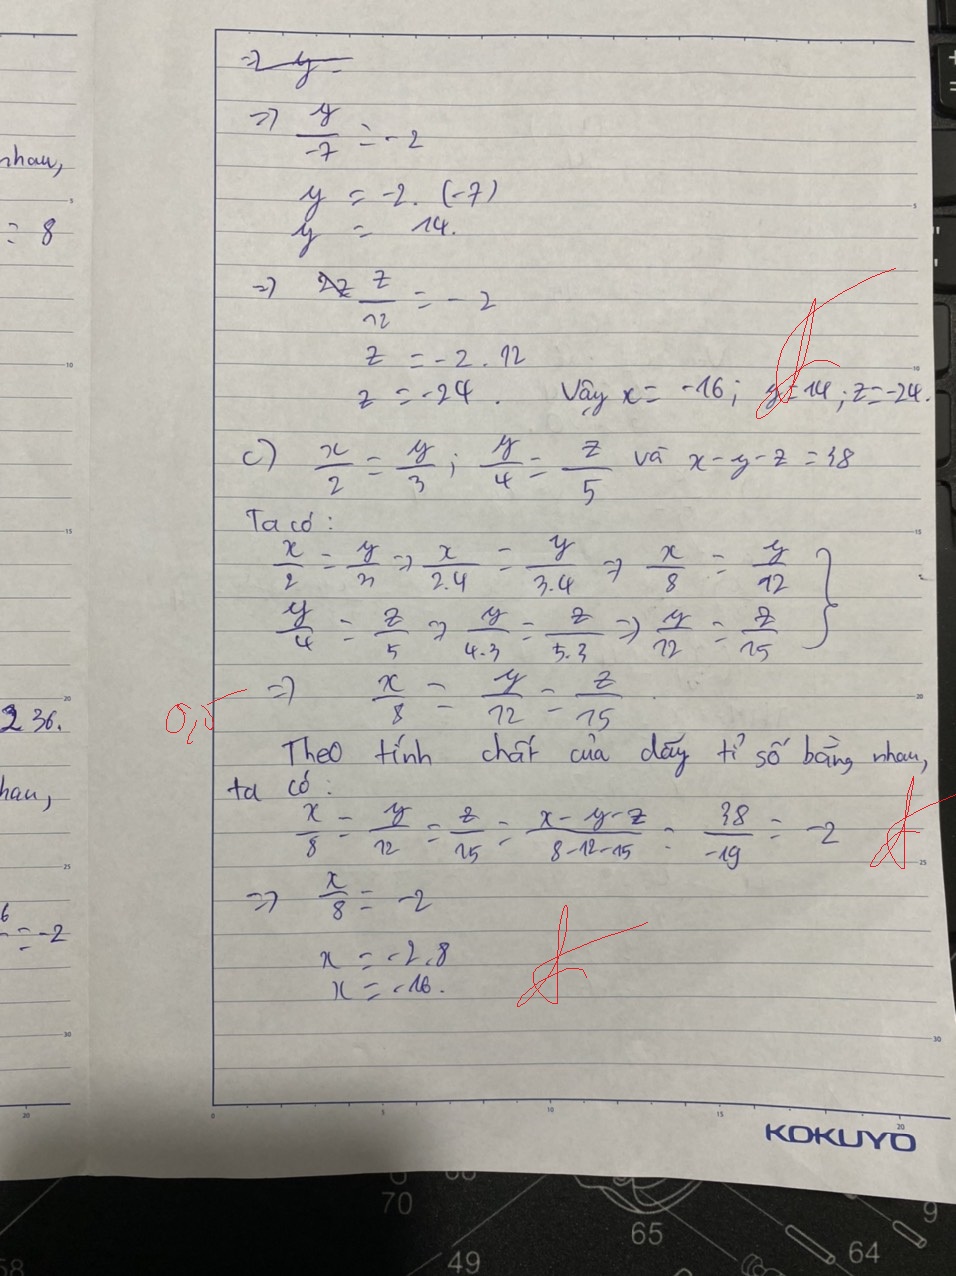 nhau,
= 8
236.
hau,
6
= -2
=> y =
=> y/-7 = -2
y = -2. (-7)
y = 14.
=> z/12 = -2
z = -2 . 12
z = -24. Vậy x = -16; y = 14; z = -24.
c) x/2 = y/3 ; y/4 = z/5 và x - y - z = 38
Ta có :
x/2 = y/3 => x/2.4 = y/3.4 => x/8 = y/12 }
y/4 = z/5 => y/4.3 = z/5.3 => y/12 = z/15
=> x/8 = y/12 = z/15
0,5
Theo tính chất của dãy tỉ số bằng nhau,
ta có :
x/8 = y/12 = z/15 = x - y - z/8 - 12 - 15 = 38/-19 = -2
=> x/8 = -2
x = -2.8
x = -16.
KOKUYO
70
65
49
64
9
58